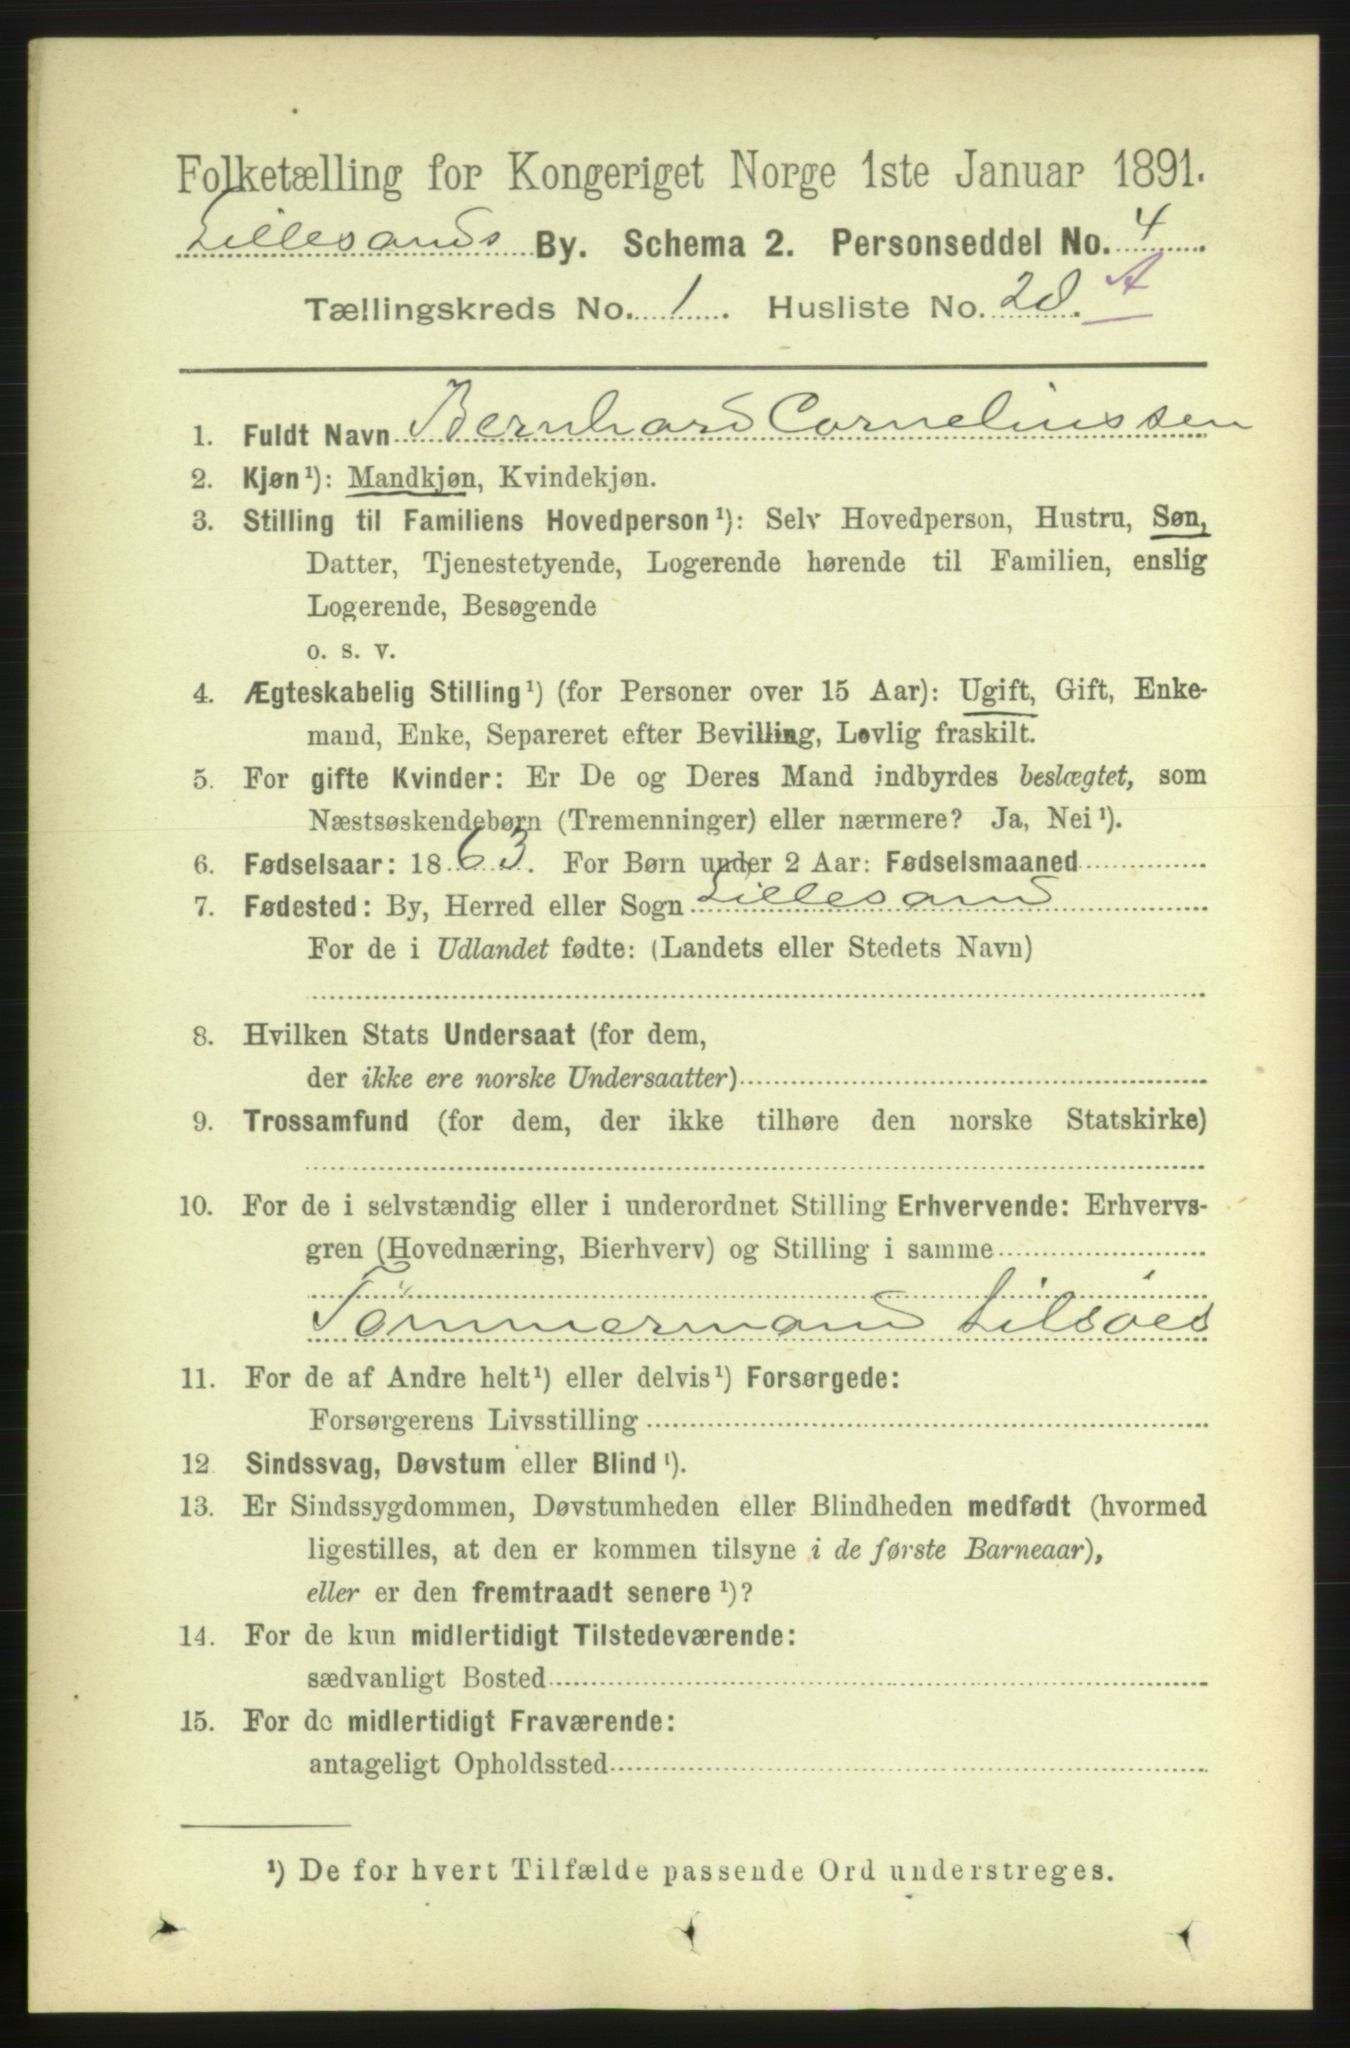 Folketælling for Kongeriget Norge 1ste Januar 1891.
Lillesands By. Schema 2. Personseddel No. 4
Tællingskreds No. 1. Husliste No. 20. A
1. Fuldt Navn Bernhard Corneliussen
2. Kjøn¹): Mandkjøn, Kvindekjøn.
3. Stilling til Familiens Hovedperson¹): Selv Hovedperson, Hustru, Søn,
Datter, Tjenestetyende, Logerende hørende til Familien, enslig
Logerende, Besøgende
o. s. v.
4. Ægteskabelig Stilling¹) (for Personer over 15 Aar): Ugift, Gift, Enke-
mand, Enke, Separeret efter Bevilling, Lovlig fraskilt.
5. For gifte Kvinder: Er De og Deres Mand indbyrdes beslægtet, som
Næstsøskendebørn (Tremenninger) eller nærmere? Ja, Nei¹).
6. Fødselsaar: 1863. For Børn under 2 Aar: Fødselsmaaned
7. Fødested: By, Herred eller Sogn Lillesand
For de i Udlandet fødte: (Landets eller Stedets Navn)
8. Hvilken Stats Undersaat (for dem,
der ikke ere norske Undersaatter)
9. Trossamfund (for dem, der ikke tilhøre den norske Statskirke)
10. For de i selvstændig eller i underordnet Stilling Erhvervende: Erhvervs-
gren (Hovednæring, Bierhverv) og Stilling i samme
Tömmermand tilsøes
11. For de af Andre helt¹) eller delvis¹) Forsørgede:
Forsørgerens Livsstilling
12 Sindssvag, Døvstum eller Blind¹).
13. Er Sindssygdommen, Døvstumheden eller Blindheden medfødt (hvormed
ligestilles, at den er kommen tilsyne i de første Barneaar),
eller er den fremtraadt senere¹)?
14. For de kun midlertidigt Tilstedeværende:
sædvanligt Bosted
15. For de midlertidigt Fraværende:
antageligt Opholdssted
¹) De for hvert Tilfælde passende Ord understreges.